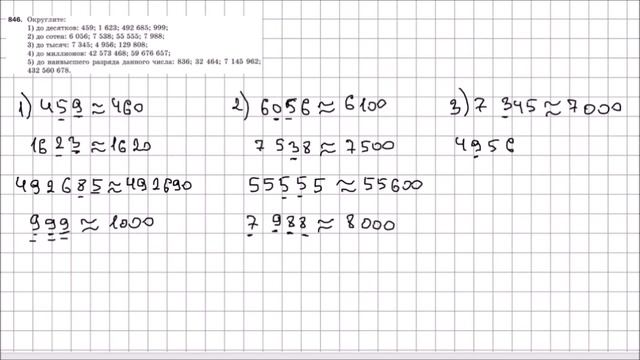 846. Округлите:
1) до десятков: 459; 1 623; 492 685; 999;
2) до сотен: 6 056; 7 538; 55 555; 7 988;
3) до тысяч: 7 345; 4 956; 129 808;
4) до миллионов: 42 573 468; 59 676 657;
5) до наивысшего разряда данного числа: 836; 32 464; 7 145 962;
432 560 678.
1) 459 ≈ 460
1623 ≈ 1620
492685 ≈ 492690
999 ≈ 1000
2) 6056 ≈ 6100
7538 ≈ 7500
55555 ≈ 55600
7988 ≈ 8000
3) 7 345 ≈ 7000
4956